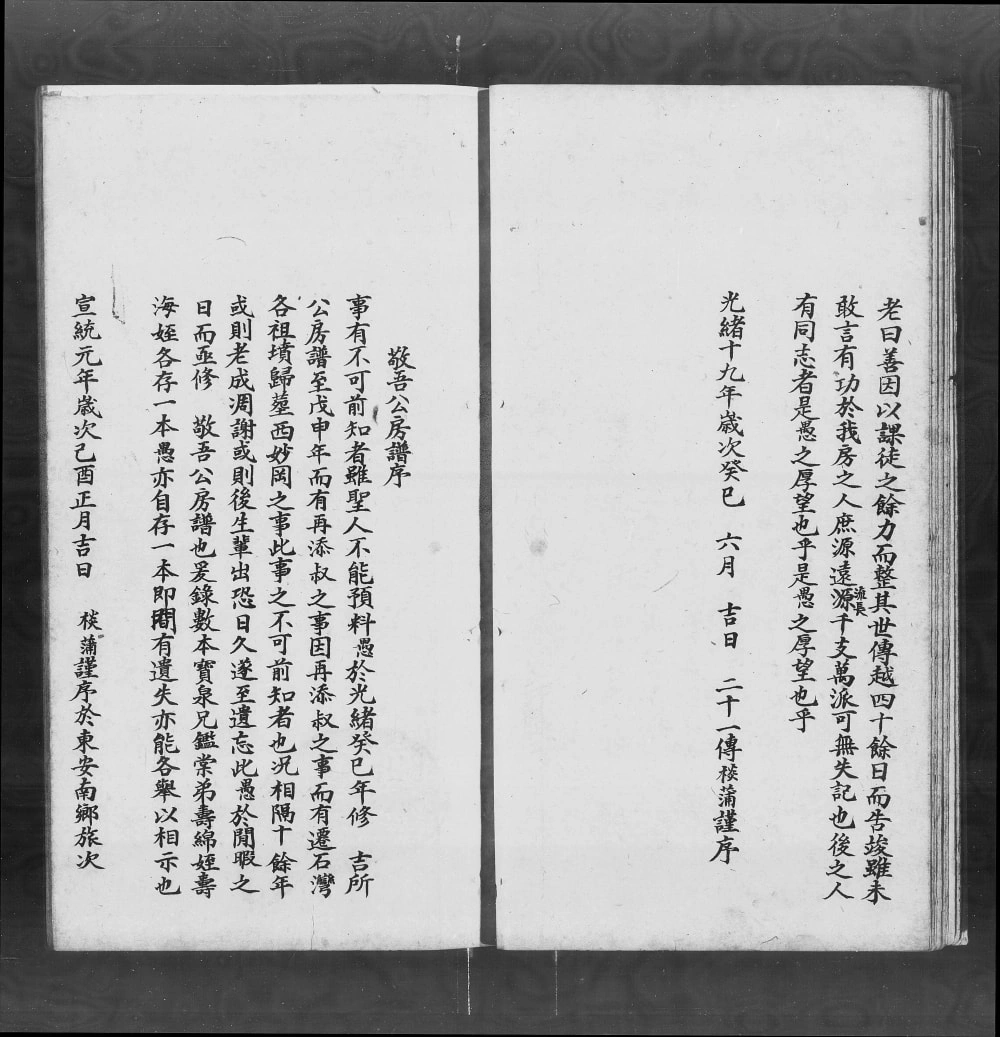 老曰善因以課徒之餘力而整其世傳越四十餘日而告竣雖未
敢言有功於我房之人庶源遠源流長千支萬派可無失記也後之人
有同志者是愚之厚望也乎是愚之厚望也乎
光緒十九年歲次癸巳 六月 吉日 二十一傳棪蒲謹序
敬吾公房譜序
事有不可前知者雖聖人不能預料愚於光緒癸巳年修 吉所
公房譜至戊申年而有再添叔之事因再添叔之事而有遷石灣
各祖墳歸塟西妙岡之事此事之不可前知者也况相隔十餘年
或則老成凋謝或則後生輩出恐日久遂至遺忘此愚於閒暇之
日而亟修 敬吾公房譜也爰錄數本寶泉兄鑑棠弟壽綿姪壽
海姪各存一本愚亦自存一本即間有遺失亦能各舉以相示也
宣統元年歲次己酉正月吉日 棪蒲謹序於東安南鄉旅次